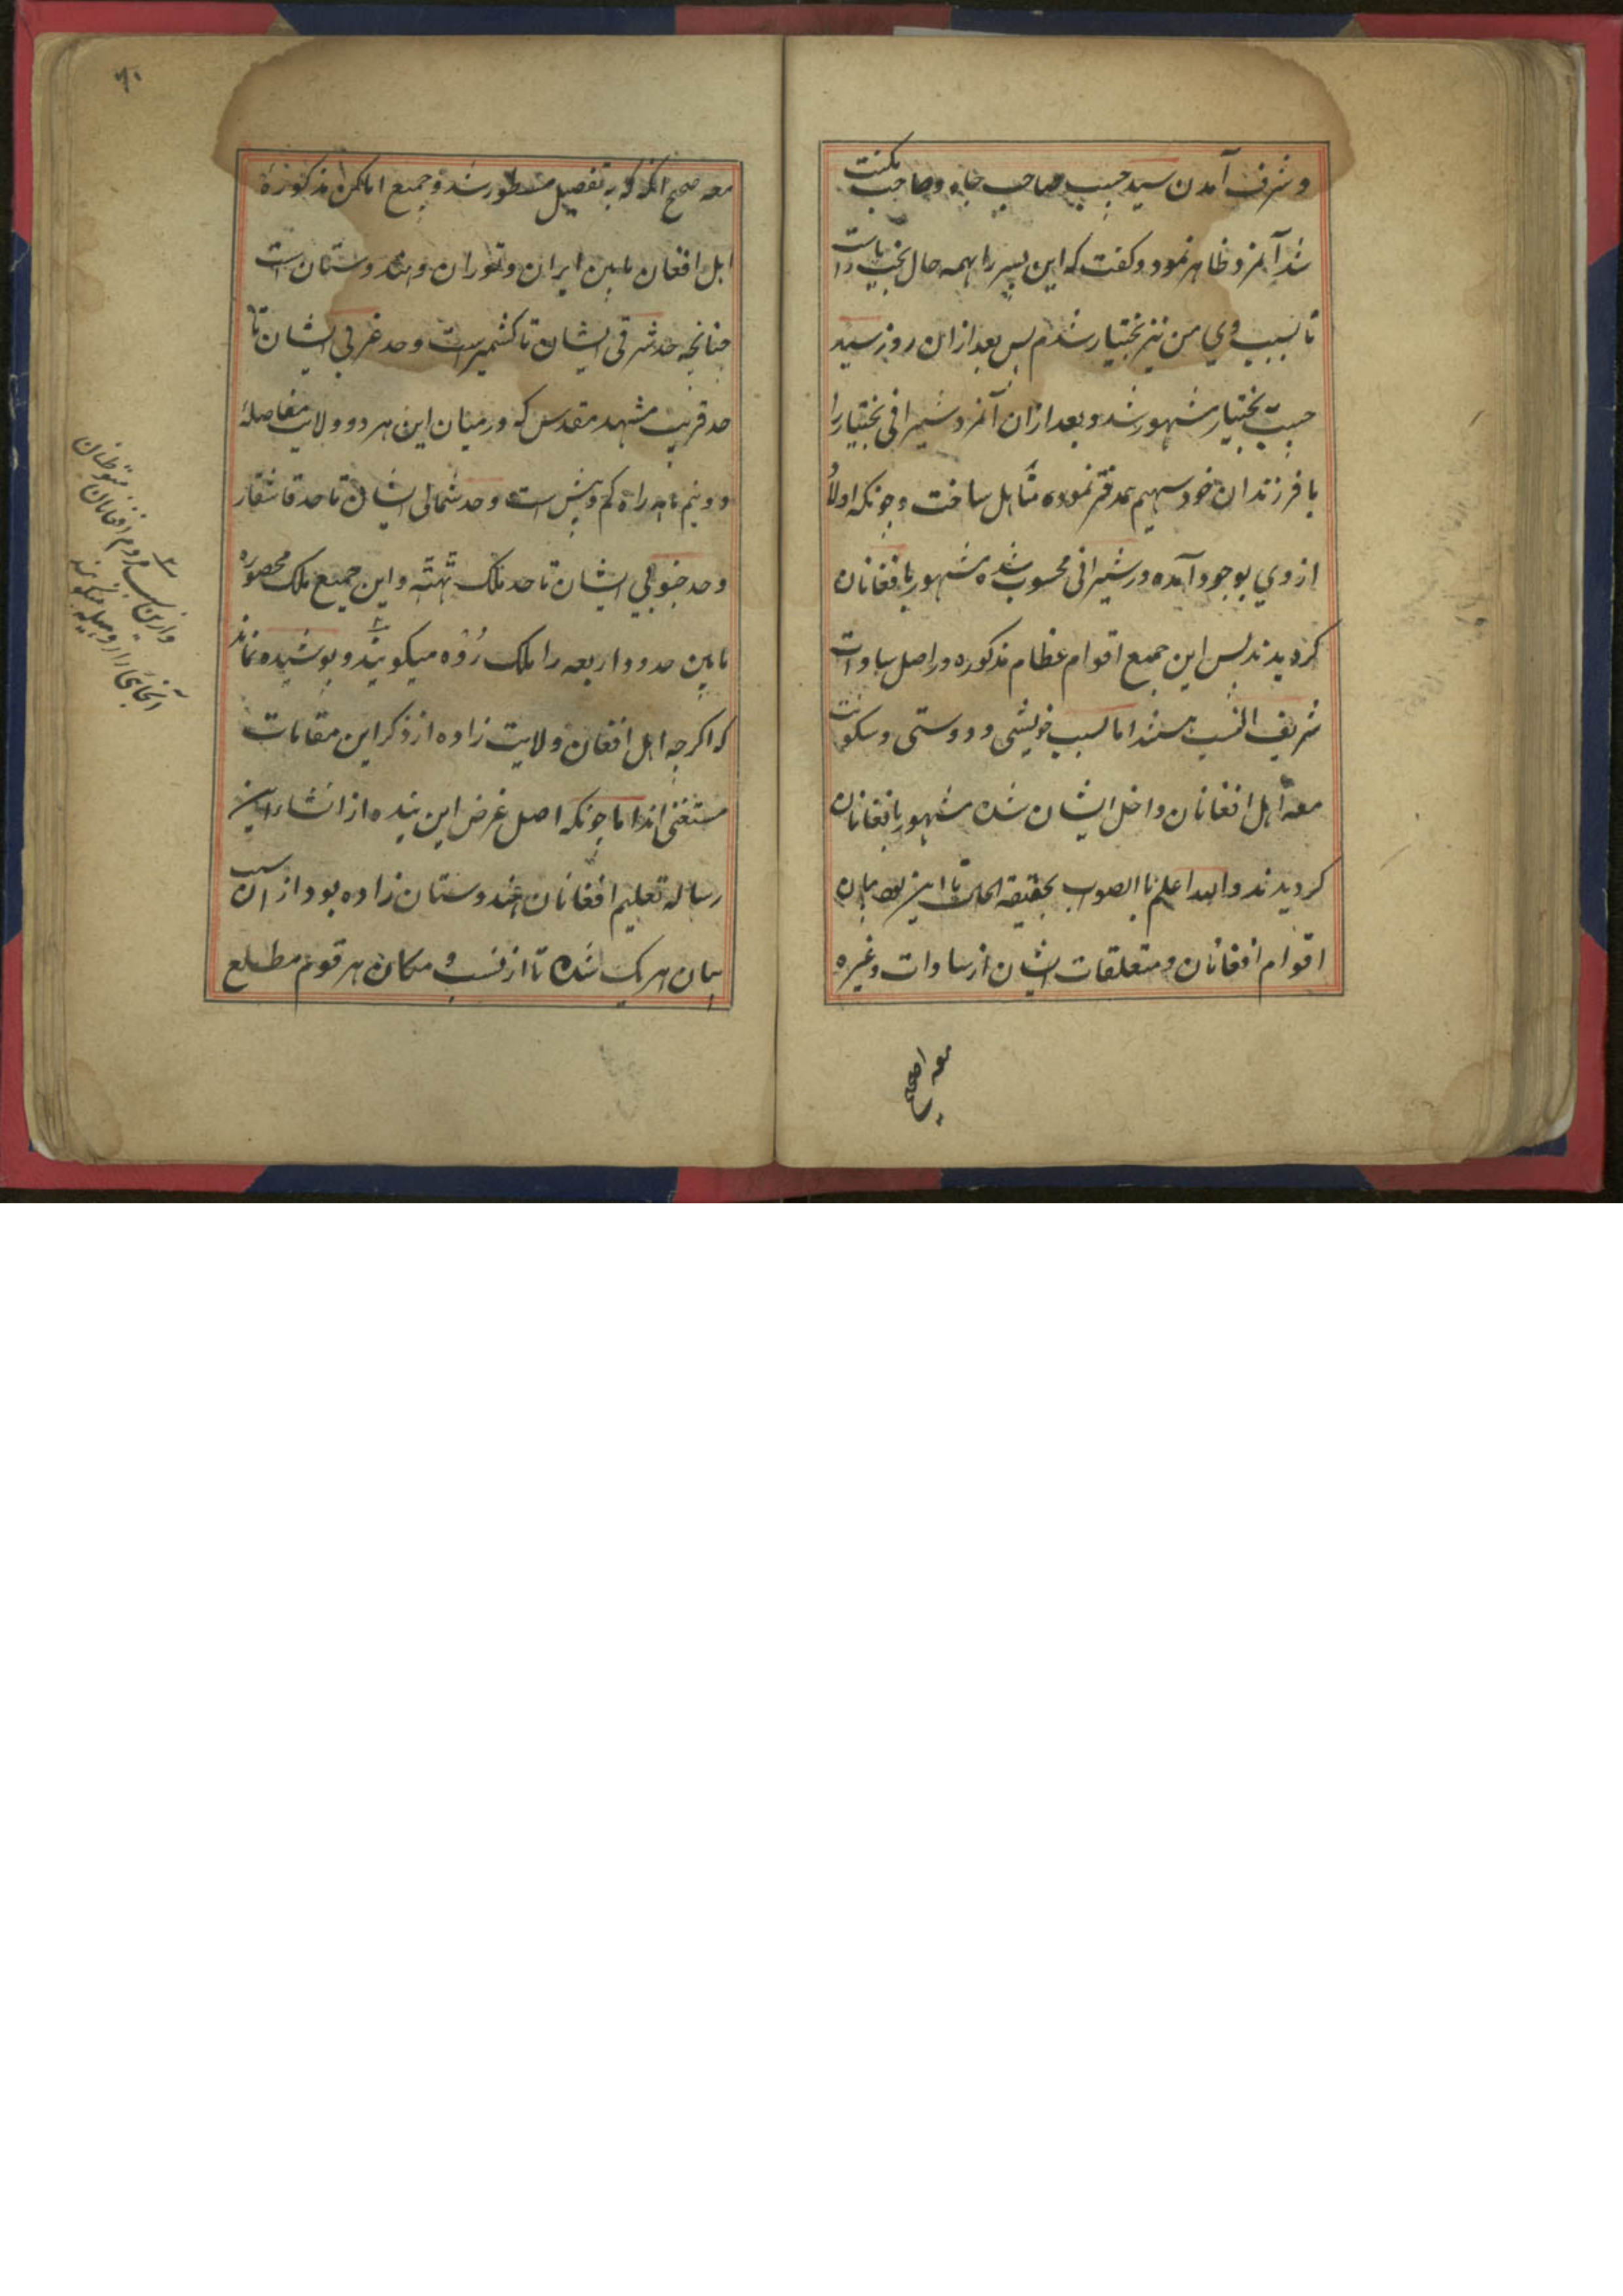 و شرف آمدن سید حبیب صاحب جاه و صاحب مکنت
شد آنمزد ظاهر نمود و کفت که این پسر را بهمه حال بخت یار است
تا بسبب وی من نیز بختیار شدم پس بعد از این روز سید
حبیب بختیار مشهور شد و بعد از ان آنمزد شیرانی بختیار را
با فرزندان خود سهیم دفتر نموده متاهل ساخت و چونکه اولاد
از وی بوجود آمده در شیرانی محسوب شده مشهور بافغانان
کردیدند پس این جمیع اقوام عظام مذکوره در اصل سادات
شریف النسب هستند اما بسبب خویشی و دوستی و سکونت
معه اهل افغانان داخل ایشان شده مشهور بافغانان
کردیدند والله اعلم باالصوب بحقیقة الحال تا این بیان
اقوام افغانان و متعلقات ایشان از سادات و غیره
معه
۶۰
معه صحیح انکه به تفصیل مسطور شد و جمیع اماکن مذکوره
اهل افغان مابین ایران و توران و هندوستان است
چنانچه حد شرقی ایشان تا کشمیرست و حد غربی ایشان تا
حد قریب مشهد مقدس که در میان این هر دو ولایت مفاصله
دو نیم ماهه راه کم و بیش است و حد شمالی ایشان تا حد قاشقار
و حد جنوبی ایشان تا حد ملک تهته و این جمیع ملک محصوره
مابین حدود اربعه را ملک روه میکویند و پوشیده نماند
که اکرچه اهل افغان ولایت زاده از ذکر این مقامات
مستغنی اند اما چونکه اصل غرض این بنده از انشاء این
رساله تعلیم افغانان هندوستان زاده بود از ان سبب
بیان هر یک شده تا از نسب و مکان هر قوم مطلع
وازین سبب مردم افغانان متوطنان
آنجائی را روهیله میکویند